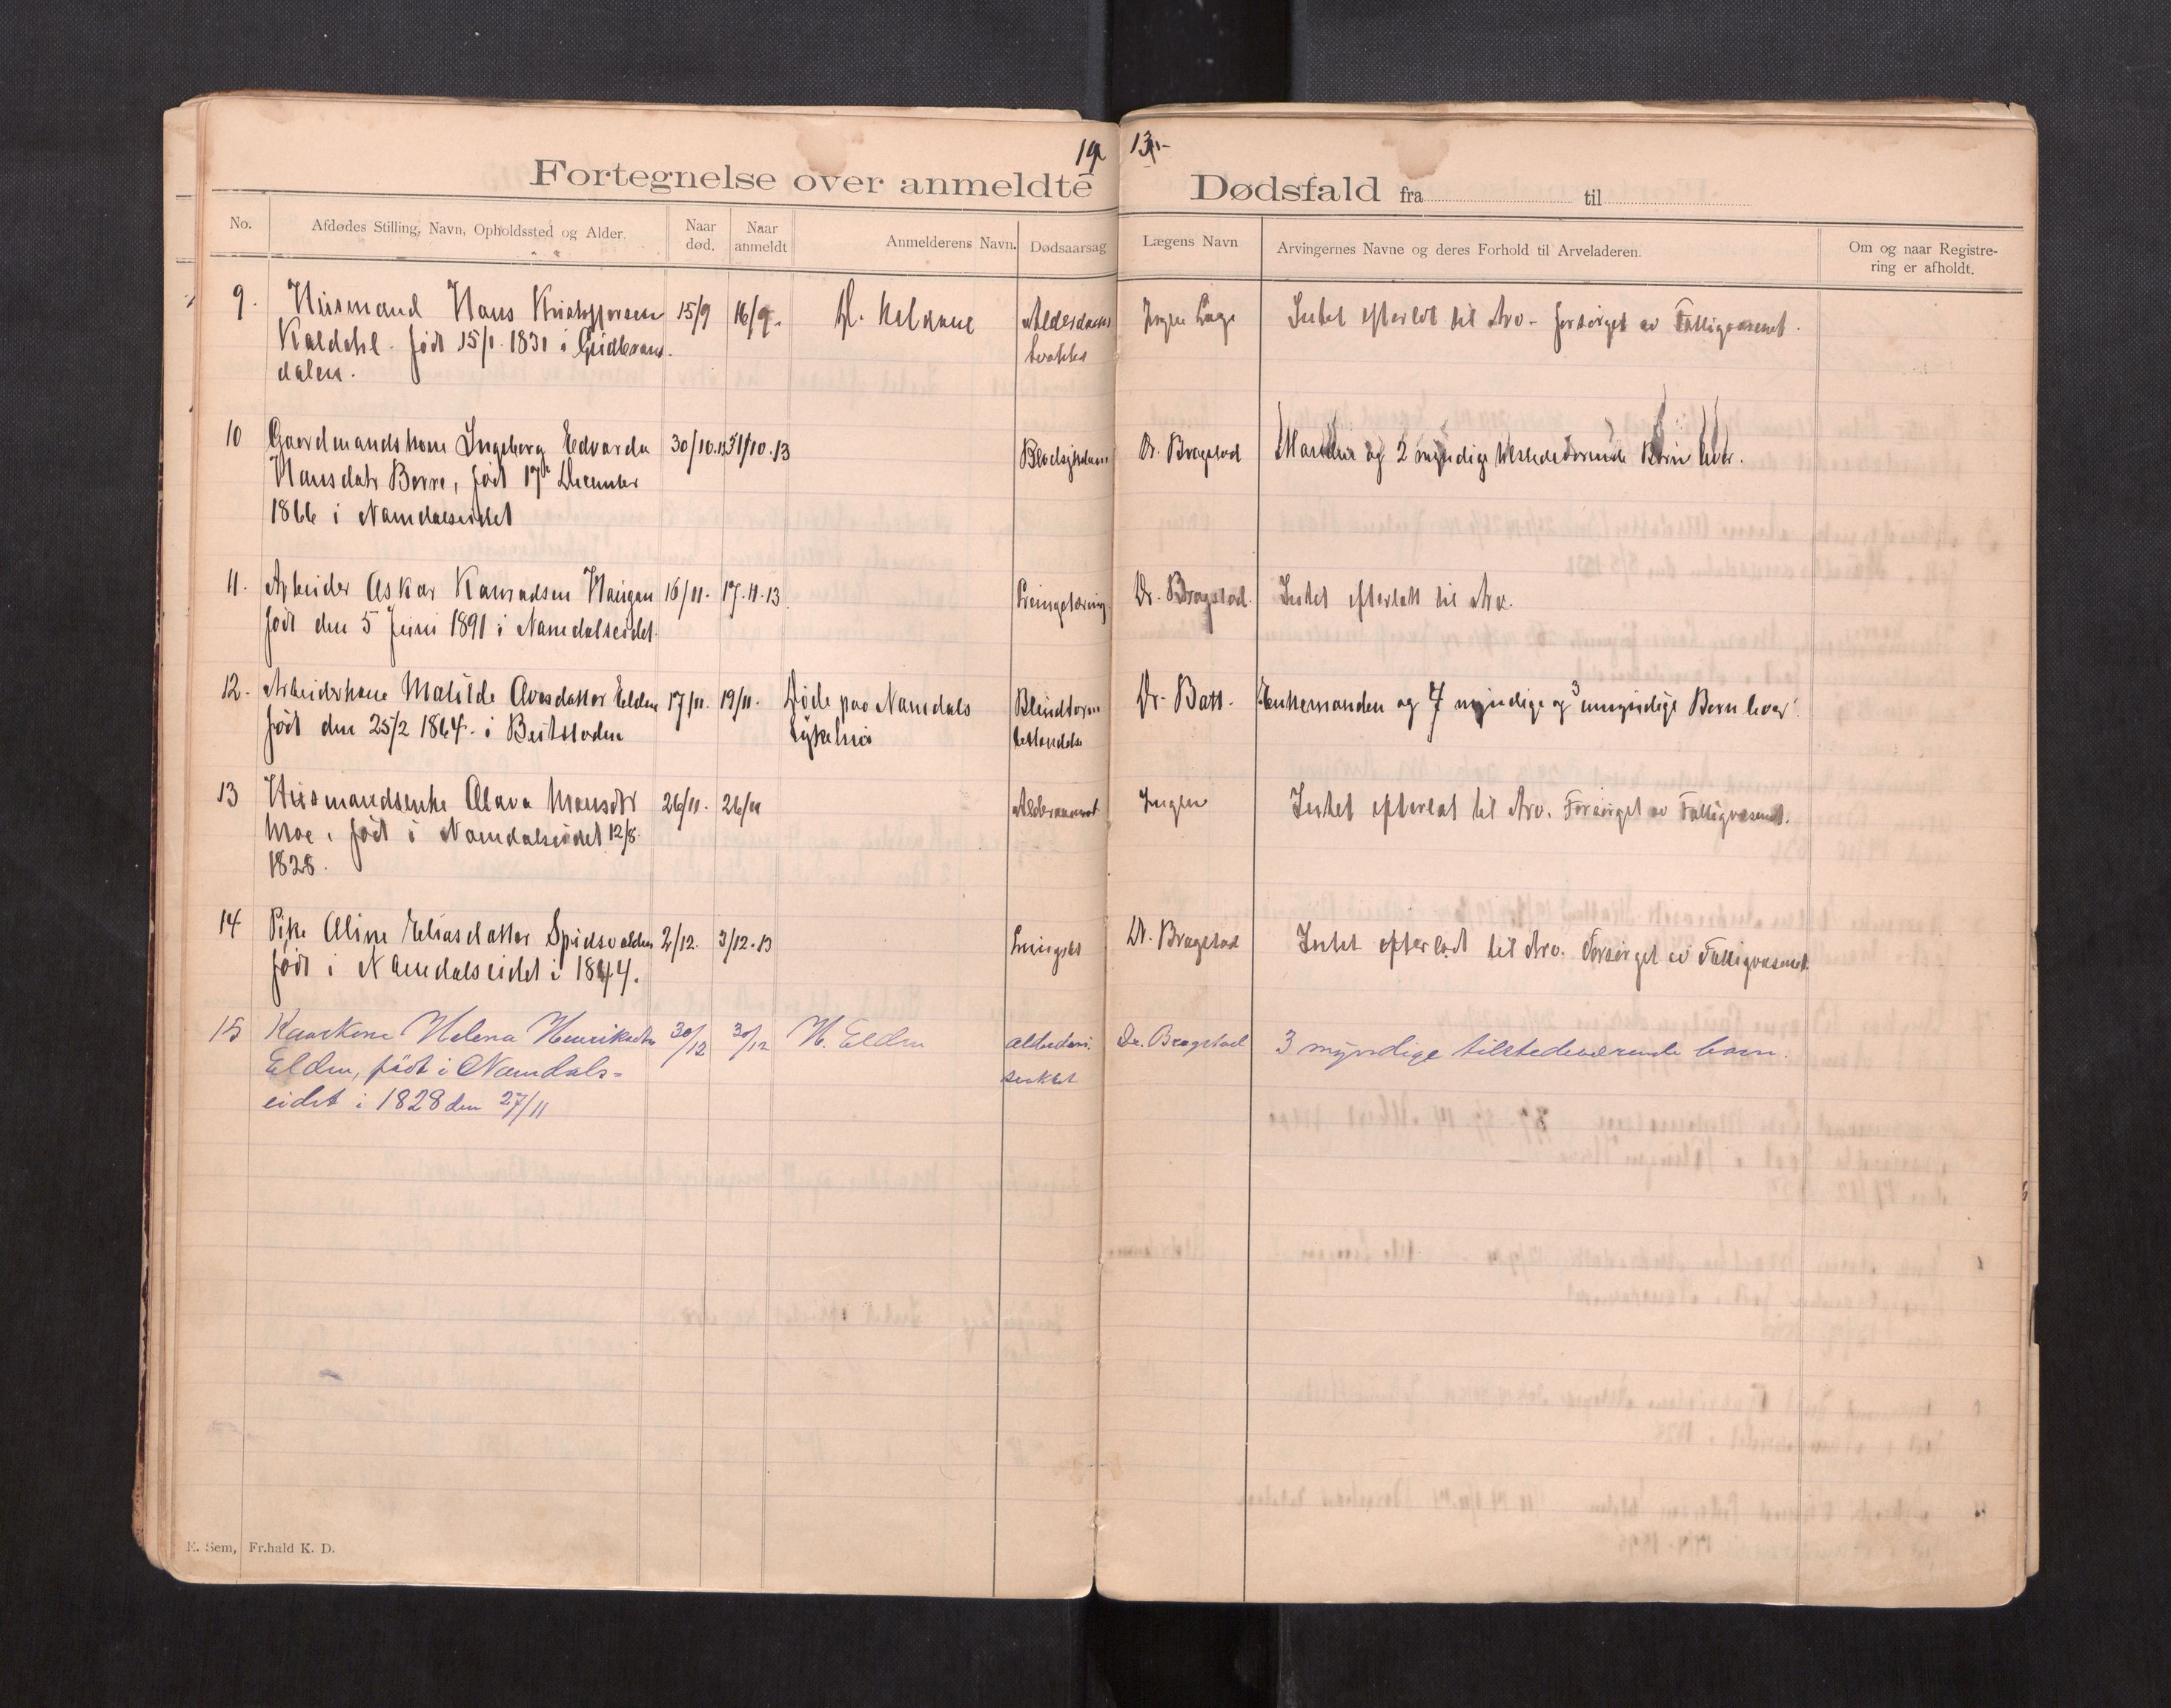 19 13.
Fortegnelse over anmeldte Dødsfald fra til
No. Afdødes Stilling, Navn, Opholdssted og Alder. Naar død. Naar anmeldt Anmelderens Navn. Dødsaarsag Lægens Navn Arvingernes Navne og deres Forhold til Arveladeren. Om og naar Registrering er afholdt.
9. Husmand Hans Kristoffersen 15/9 16/9. Alderdoms Ingen Læge Intet efterlatt til Arv - forsørget av Fattigvæsenet.
Kaldahl. født 15/1. 1831 i Gudbrans svakhet
dalen.
10 Gaardmandskone Ingeborg Edvarda 30/10.13 31/10.13 Blodsykdom Dr. Bragstad Manden og 2 myndige tilstedeværende Børn lever.
Hansdatr Borre, født 17de December
1866 i Namdalseidet
11. Arbeider Oskar Konradsen Haugan 16/11. 17.11.13 Dr. Bragstad. Intet efterlatt til Arv.
født den 5 Juni 1891 i Namdalseidet.
12. Arbeiderkone Matilde Olvesdatter Elden 17/11. 19/11. Døde paa Namdals Blindtarm Dr. Batt. Enkemanden og 7 myndige og 3 umyndige Børn lever.
født den 25/2 1864. i Beitstaden Sykehus betændelse
13 Husmandsenke Olava Monsdtr 26/11. 26/11 Ingen Intet efterlat til Arv. Forsørget av Fattigvæsenet.
Moe, født i Namdalseidet 12/8
1828.
14 Pike Oline Eliasdatter 2/12. 3/12.13 Dr. Bragstad Intet efterladt til Arv. Forsørget av Fattigvæsenet.
født i Namdalseidet i 1844.
15 Kaarkone Helena Henriksdtr 30/12 30/12 N. Elden alderdoms- Dr. Bragstad 3 myndige tilstedeværende barn.
Elden, født i Namdals- svakhet
eidet i 1828 den 27/11
E. Sem, Fr.hald K. D.